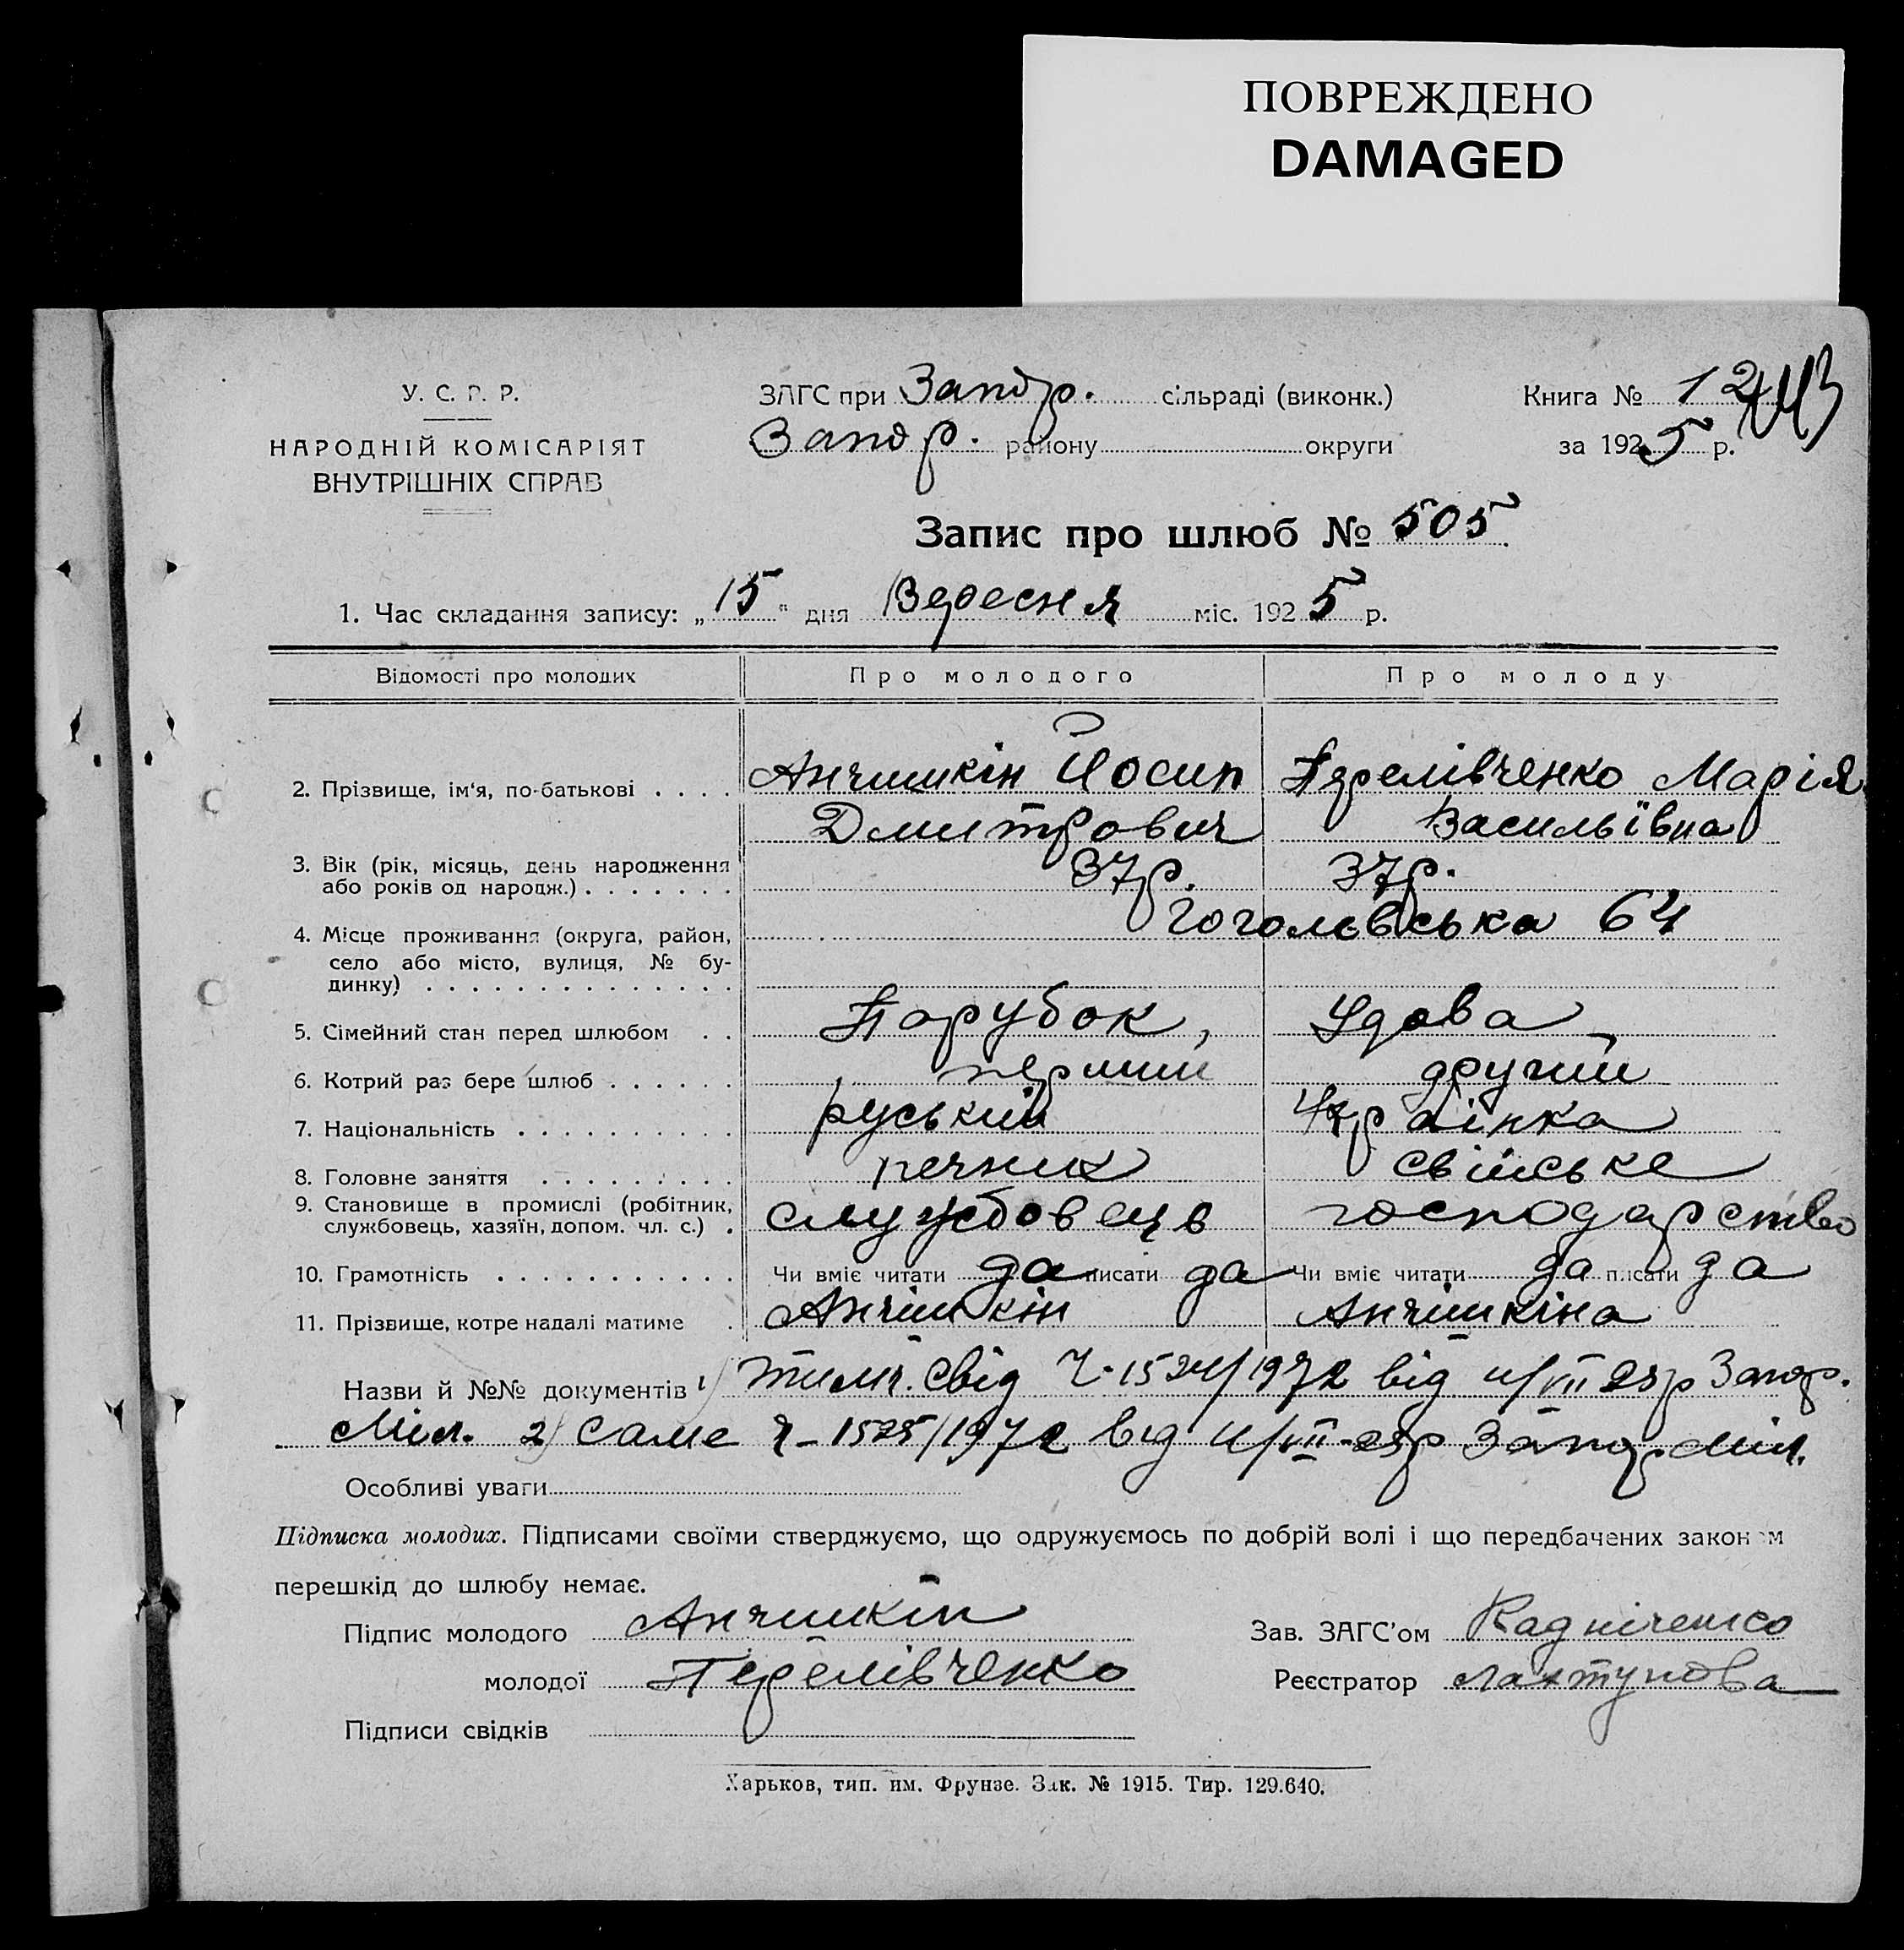 ПОВРЕЖДЕНО
DAMAGED
У. С. Р. Р.
НАРОДНІЙ КОМІСАРІЯТ
ВНУТРІШНІХ СПРАВ
ЗАГС при Запор. сільраді (виконк.)
Запор. району округи
Книга № 12
за 1925 р.
Запис про шлюб № 505
1. Час складання запису: „15" дня Вересня міс. 1925 р.
Відомості про молодих Про молодого Про молоду
2. Прізвище, ім'я, по-батькові . . . . Анчишкін Йосип Перелівченко Марія
Дмитрович Васильівна
3. Вік (рік, місяць, день народження
або років од народж.) . . . . . . . 37 р. 37 р.
4. Місце проживання (округа, район, Гоголєвська 64
село або місто, вулиця, № бу-
динку) . . . . . . . . . . . . . .
5. Сімейний стан перед шлюбом . . Парубок, Удова
6. Котрий раз бере шлюб . . . . . . перший другий
7. Національність . . . . . . . . . . руський Українка
8. Головне заняття . . . . . . . . . печник свійське
9. Становище в промислі (робітник,
службовець, хазяїн, допом. чл. с.) . службовець господарство
10. Грамотність . . . . . . . . . . . Чи вміє читати да писати да Чи вміє читати да писати да
11. Прізвище, котре надалі матиме . Анчішкін Анчішкіна
Назви й №№ документів 1) тимч. свід Ч-1524/1972 від VII 25 р Запор.
Міл. 2) Саме Ч-1525/1972 від VII-25 р Запор. міл.
Особливі уваги
Підписка молодих. Підписами своїми стверджуємо, що одружуємось по добрій волі і що передбачених законом
перешкід до шлюбу немає.
Підпис молодого Анчишкін
молодої Перелівченко
Підписи свідків
Зав. ЗАГС'ом
Реєстратор Лахтунова
Харьков, тип. им. Фрунзе. Зак. № 1915. Тир. 129.640.